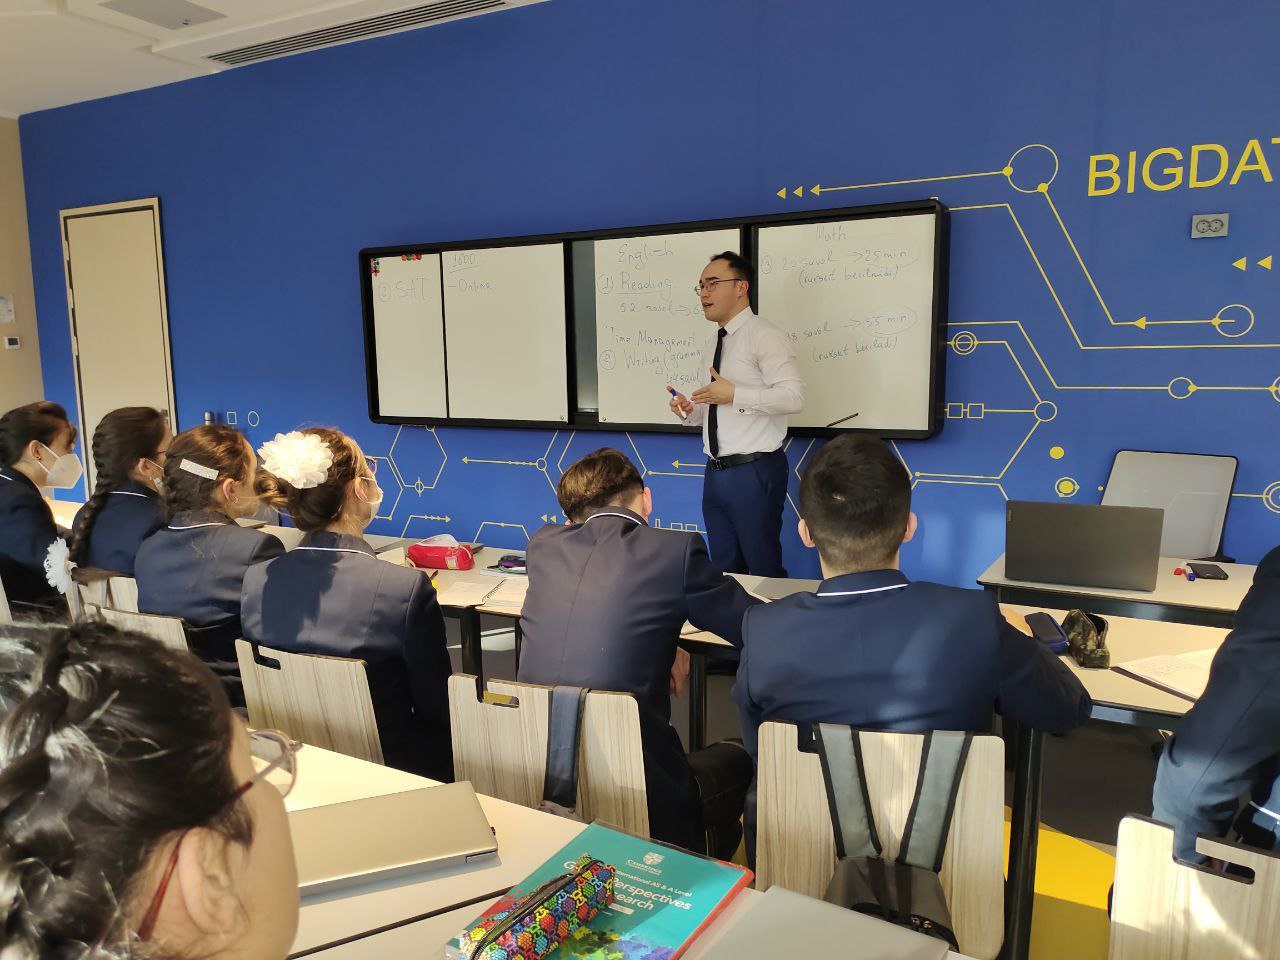 BIGDAT
② SAT.
1600
- Online
English
① Reading
52 savol →6
Time Management
② Writing (gramma
44 savol
Math
③ 20 savol → 25 min
(ruxsat berilmidi)
38 savol → 55 min
(ruxsat beriladi)
CAMBRIDGE
International AS & A Level
Perspectives
search